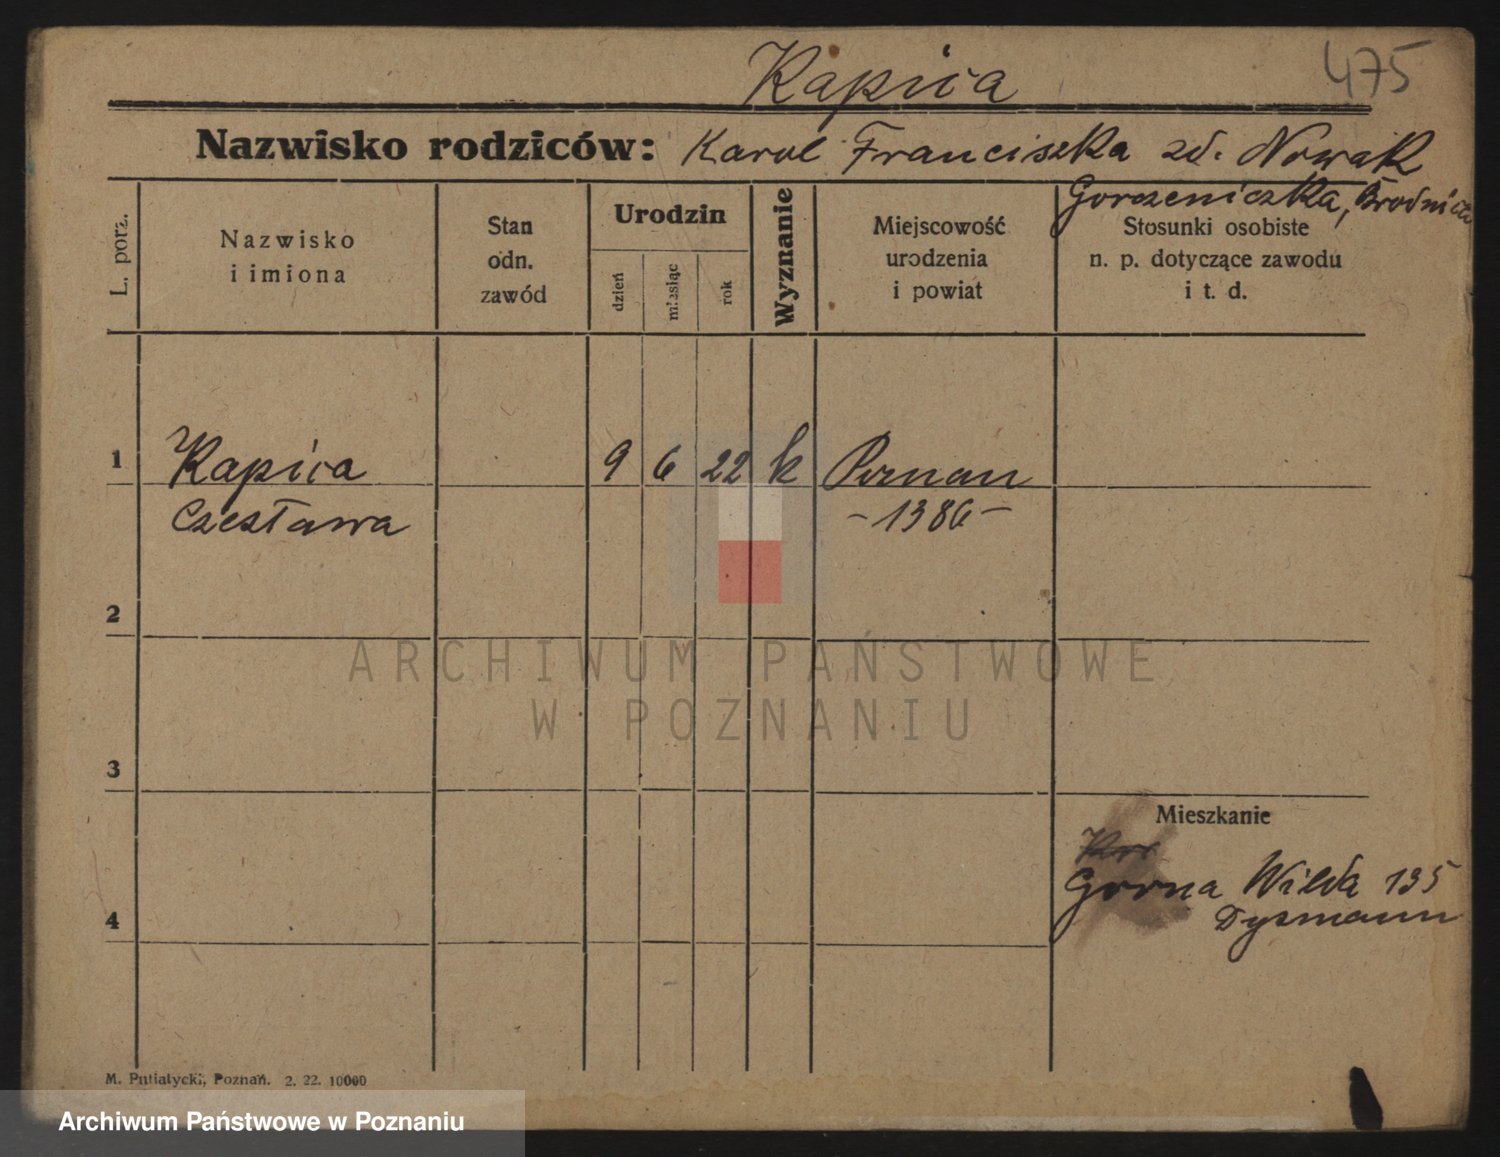 475
Kapica
Nazwisko rodziców: Karol Franciszka zd. Nowak
Gorzeniczka, Brodnica
L. porz.
Nazwisko i imiona
Stan odn. zawód
Urodzin
dzień
miesiąc
rok
Wyznanie
Miejscowość urodzenia i powiat
Stosunki osobiste n. p. dotyczące zawodu i t. d.
1 Kapica 9 6 22 k Poznan
Czesława -1386-
2
ARCHIWUM PAŃSTWOWE
W POZNANIU
3
Mieszkanie
Gorna Wilda 135
4
Dysmann
M. Putiatycki, Poznań. 2. 22. 10000
Archiwum Państwowe w Poznaniu